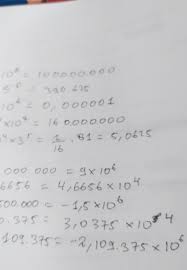 10⁸ = 100.000.000
= 390.625
10⁶ = 0,000001
10⁸ = 160.000.000
· 3⁵ = 1/16 · 81 = 5,0625
.000.000 = 9×10⁶
6656 = 4,6656×10⁴
500.000 = -1,5×10⁶
0.375 = 3,0375×10⁴
.109.375 = -2,109.375×10⁶